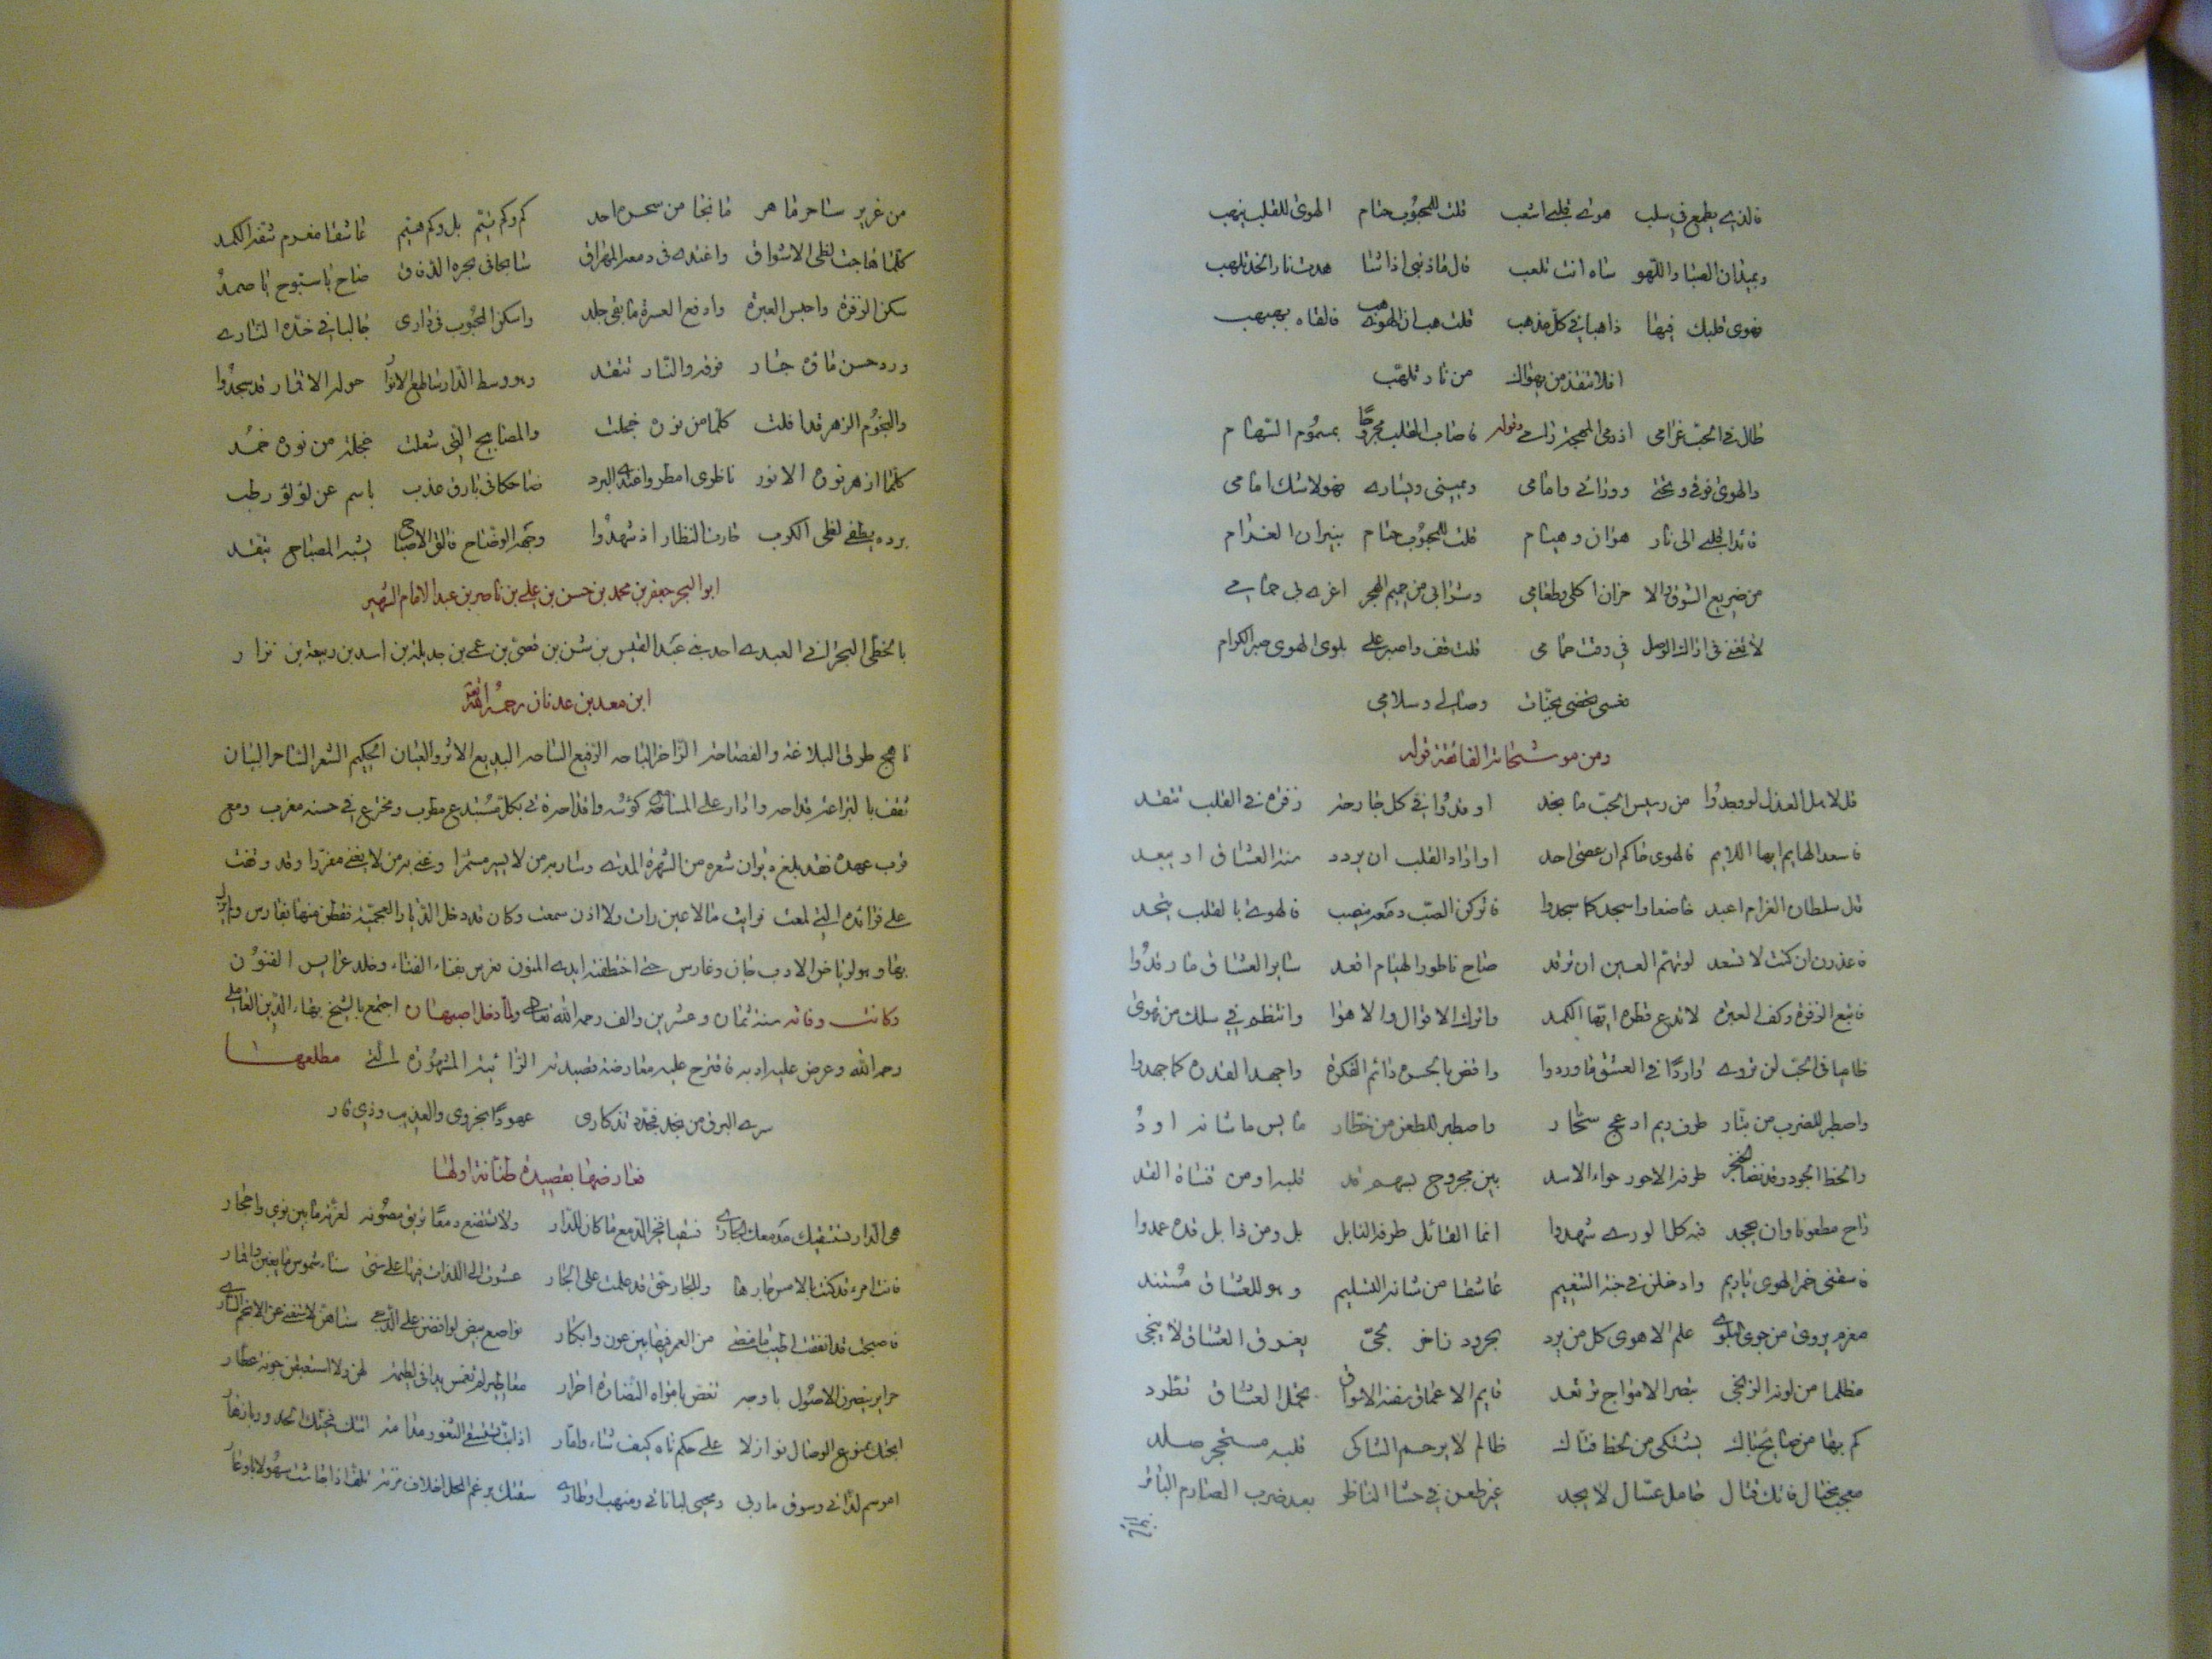 فالذي يطمع في سلب هوى قلبي اشعب قلت للمحبوب حتام الهوى للقلب ينهب
وبميدان الصبا واللهو ساه انت تلعب قال ما ذنبي اذا شا هدت نار الخد تلهب
فهوى قلبك فيها ذاهبا في كل مذهب قلت هب ان الهوى هب فالقاه بهبهب
افلا تنقذ من يهواك من نار تلهب
طال في الحب غرامي اذ رمى المهجة رامي وقوله فاصاب القلب مجروحا بمسموم السهام
والهوى فوقي وتحتي وورائي وامامي ويميني ويساري فهو لا شك امامي
قائدا قلبي الى نار هوان وهيام قلت للمحبوب حتام بنيران الغرام
من ضريع الشوق والا حزان اكلي وطعامي وشرابي من حميم الهجر اغرى بي حمامي
لا تغثني اذاك الوصل في وقت حمامي قلت قف واصبر على بلوى الهوى صبر الكرام
فعسى تحضى بجنات وصالي وسلامي
ومن موشحاته الفائقة قوله
قل لاهل العذل لو وجدوا من رسيس الحب ما نجد اوقدوا في كل جارحة زفرة في القلب تتقد
فاسعد الهايم ايها اللايم فالهوى حاكم ان عصى احد او اراد القلب ان يردد منه العشاق او يبعد
قل سلطان الغرام اعبد خاضعا واسجد كما سجدوا فالهوى بالقلب يتحد
فاعذرن ان كنت لا تسعد لو تهم العين ان ترقد صاح ناطور الهيام اقعد ساير العشاق ما رقدوا
فاتبع الزفرة وكف العبرة لا تدع قطره ايها الكمد واترك الاقوال والاهوا وانتظم في سلك من تهوى
ظاميا في الحب لن تروى واردا في العشق ما وردوا دائم الفكرة واجهد القدره كما جهدوا
واصطبر للضرب من بتار طرف ريم ادعج سحار واصطبر للطعن من خطار
طرفه الاحور حواء الاسد بين مجروح بسهم قد قلبه او من قناة القد
راح مطعونا وان يجحد فيه كل الورى شهدوا انما القاتل طرفه النابل بل ومن ذا بل قده عمدوا
فاسقني خمر الهوى ياريم وادخلن في جنة التنعيم عاشقا من شانه التسليم وهو للعشاق مستند
مغرم يروى من جوى البلوى علم الاهوى كل من يرد يغرق العشاق لا ينجي
مظلما من لونه الزنجي بتصر الامواج ترتعد
كم بها من هايم بحناك يشتكي من لحظ فتاك ظالم لا يرحم الشاكي قلبه مستحجر صلد
معجب مختال فاتك قتال حامل عسال لا يجد غير طعن في حشا الناظر بعد ضرب الصارم الباتر
من غرير ساحر ماهر ما نجا من سحره احد كم وكم يتم بل وكم هيم عاشقا مغرم شفه الكمد
كلما هاجت لظى الاشواق واغتدى في دمعه المهراق سابحا في بحره الدفاق صاح يا سبوح يا صمد
سكن الزفرة واحبس العبرة وادفع العسرة ما بقي جلد واسكن المحبوب في داري جالبا في خده الناري
ورد حسن ماؤه جار فوقه والنار تتقد وهو وسط الدار ساطع الانوار حوله الاقمار قد سجدوا
والنجوم الزهر قد افلت كلما من نوره خجلت والمصابيح التي شعلت خجلة من نوره خمد
كلما ازهر نوره الانور ناظري امطر واغتدى البرد ضاحكا في بارق عذب باسم عن لؤلؤ رطب
برده يطفي لظى الكرب حارت النظار اذ شهدوا وجهه الوضاح فالق الاصباح يشبه المصباح يتقد
ابو البحر جعفر بن محمد بن حسن بن علي بن ناصر بن عبد الامام الشهير
بالخطي البحراني العبدي احد بني عبد القيس بن شن بن قصى بن دعمي بن جديلة بن اسد بن ربيعة بن نزار
ابن معد بن عدنان رحمه الله تعالى
ناهج طرق البلاغة والفصاحة الزاخر الباحة الرفيع الساحة البديع الاثر والعيان الحكيم الشعر الساحر البيان
ثقف بالبراعة قداحه وادار على المسامع كؤسه واقداحه فاتى بكل مبتدع مطرب ومخترع في حسنه مغرب ومع
قرب عهده فقد بلغ ديوان شعره من الشهرة المدى وسار به من لا يسير مشمرا وغنى به من لا يغنى مغردا وقد وقفت
على فرائده التي لمعت فرايت ما لا عين رات ولا اذن سمعت وكان قد دخل الديار العجمية فقطن منها بفارس ولم يزل
بها وهو لرياض الادب جان وغارس حتى اختطفته ايدي المنون فعرس بفناء الفناء وخلد عرايس الفنون
وكانت وفاته سنة ثمان وعشرين والف رحمه الله تعالى ولما دخل اصبهان اجتمع بالشيخ بهاء الدين العاملي
رحمه الله وعرض عليه ادبه فاقترح عليه معارضة قصيدته الرائية المشهورة التي مطلعها
سرى البرق من نجد فجدد تذكاري عهودا بحزوى والعذيب وذي قار
فعارضها بقصيدة طنانة اولها
هي الدار تستسقيك مدمعك الجاري فسقيا فخير الدمع ما كان للدار ولا تستضع دمعا تريق مصونه لعزته ما بين نوي واحجار
فانت امرء قد كنت بالامس جارها وللجار حق قد علمت على الجار عشوت الى اللذات فيها على سنى سناء شموس ما يغبن واقمار
فاصبحت قد انفقت اطيب ما مضى من العمر فيها بين عون وابكار نواصع بيض لو افضن على الدجى سناهن لاستغنى عن الانجم الساري
حراير ينصرن الاصول باوجه تغص بامواه النضارة احرار معاطير لم تغمس يد في لطيمة لهن ولا استعبقن جونة عطار
ابحنك ممنوع الوصال نوازلا على حكم ناه كيف شاء وامار
امرسم لذاتي وسوق ماربي ومجنى لباناتي ومنهب اوطاري سقتك برغم المحل اخلاف مزنة تلف اذا جاشت سهولا باوعار